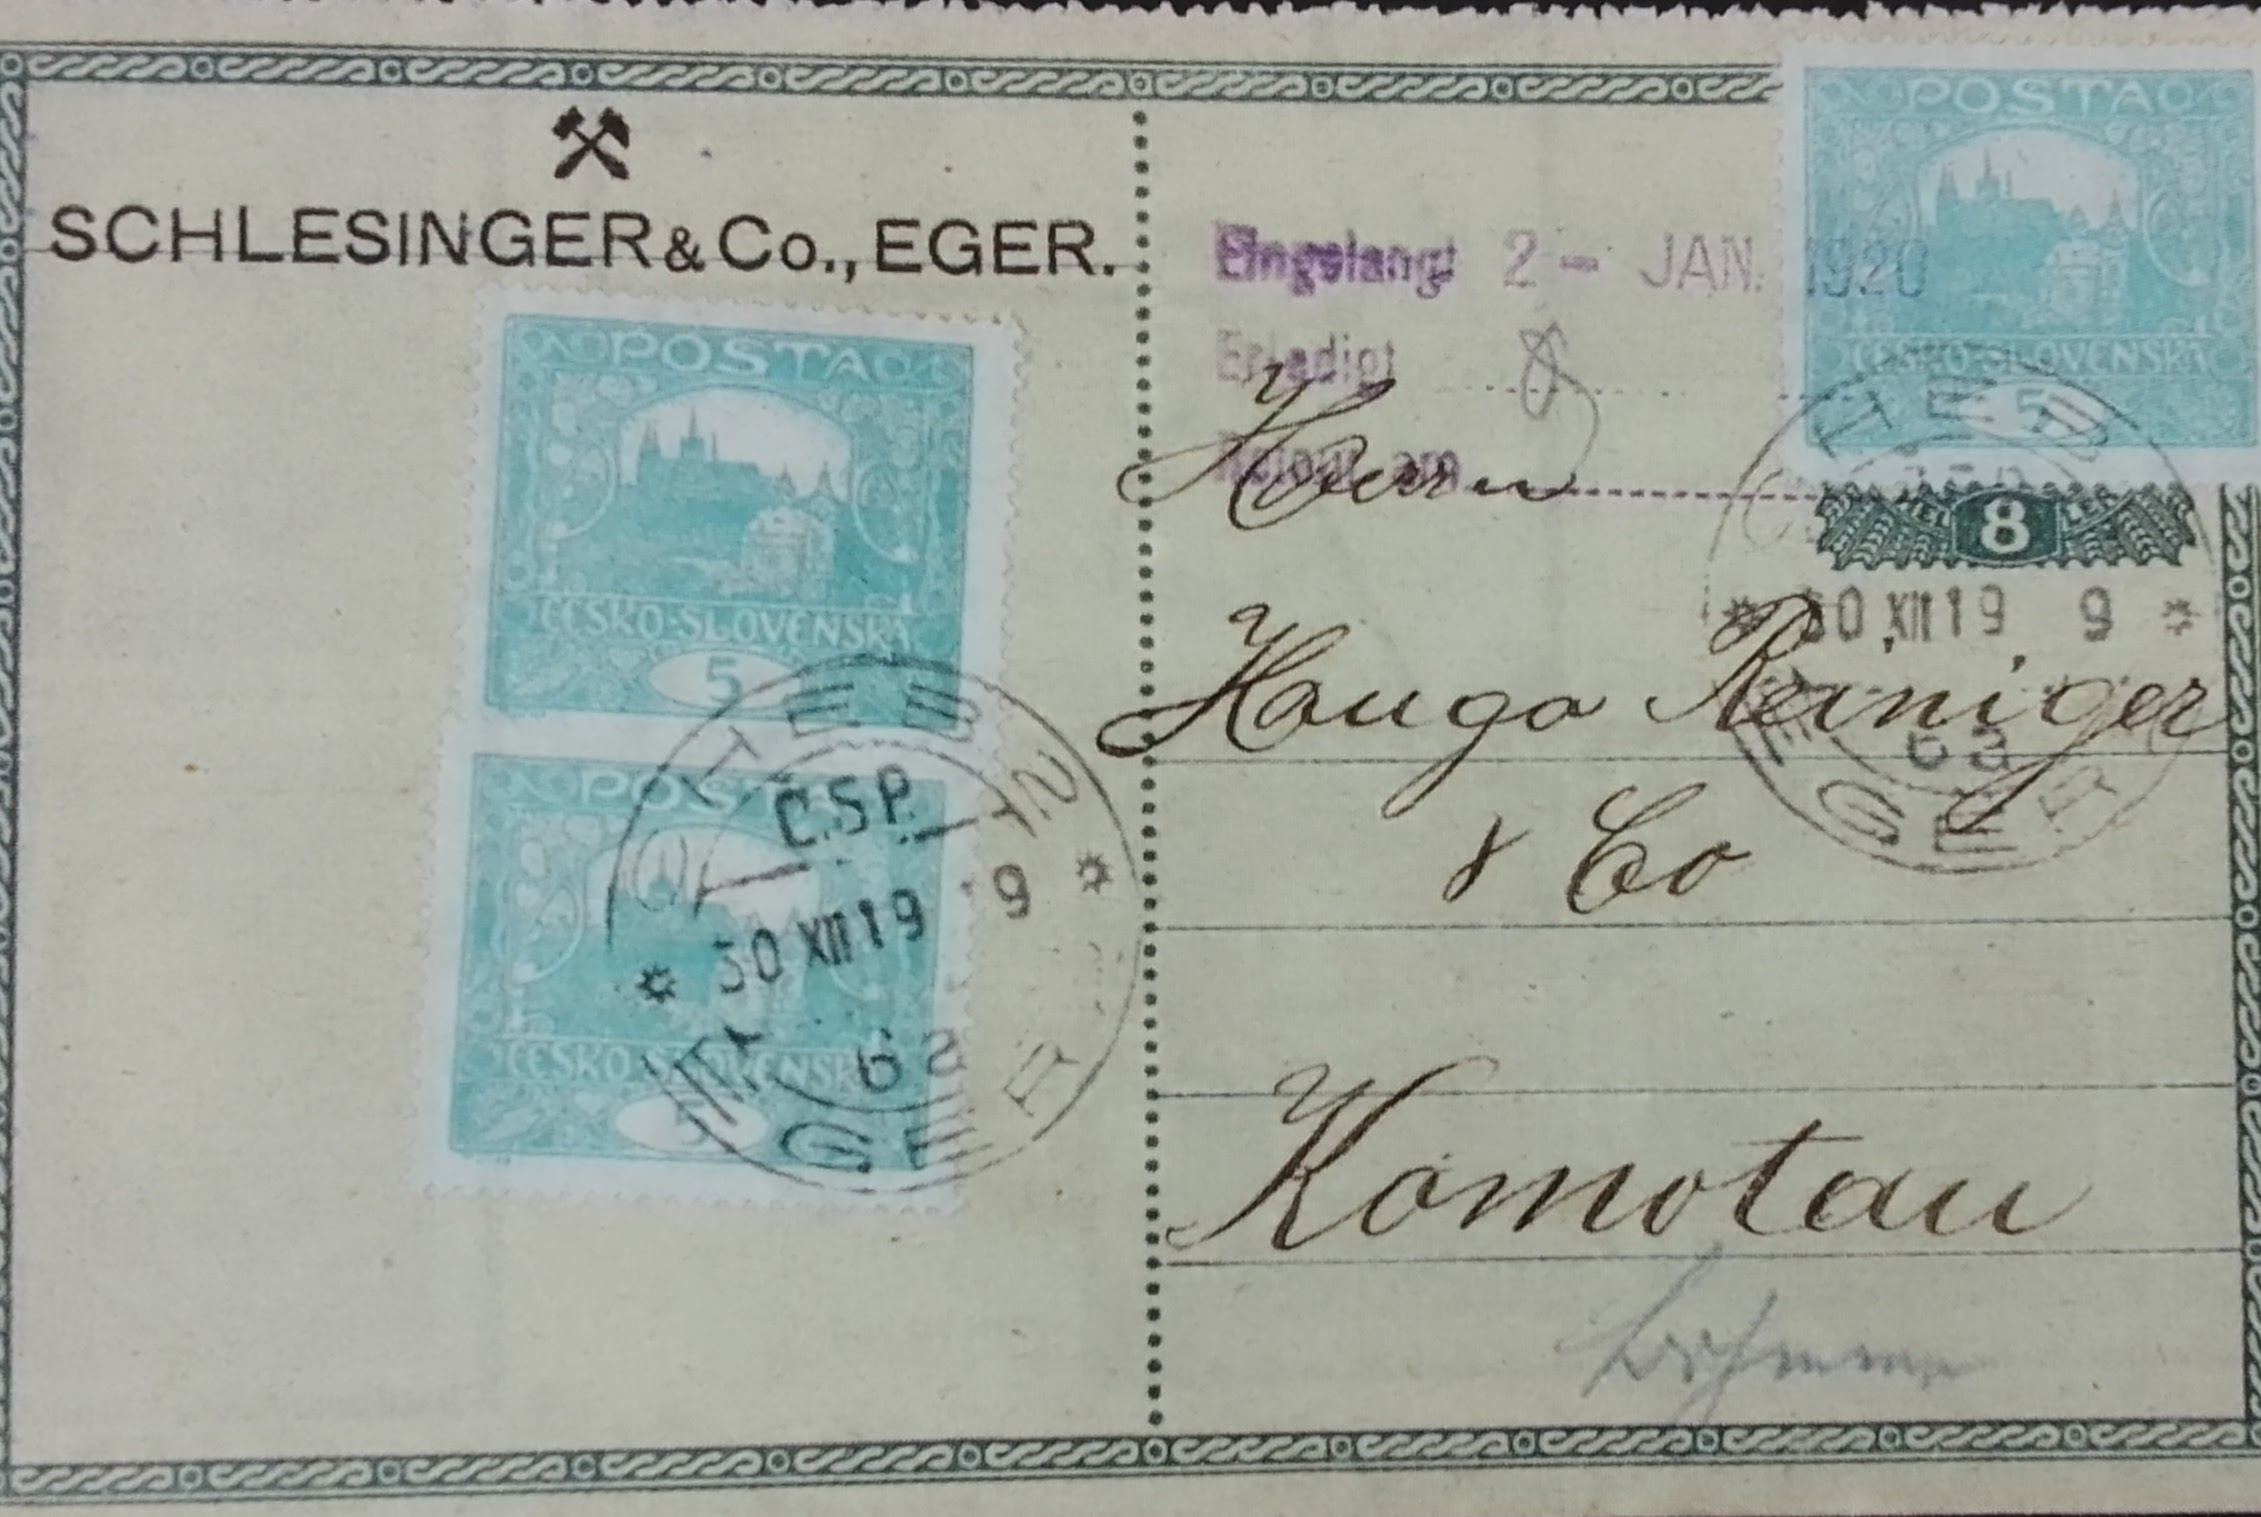 SCHLESINGER & Co., EGER.
Eingelangt 2 - JAN. 1920
Erledigt
POSTA
ČESKO-SLOVENSKÁ
5
8
Herrn
Hugo Reiniger
& Co
Komotau
POSTA
ČESKO-SLOVENSKÁ
5
POSTA
ČESKO-SLOVENSKÁ
5
CHEB 2
Č.S.P.
* 30 XII 19 9 *
6a
EGER
CHEB 2
* 30 XII 19 9 *
6a
EGER